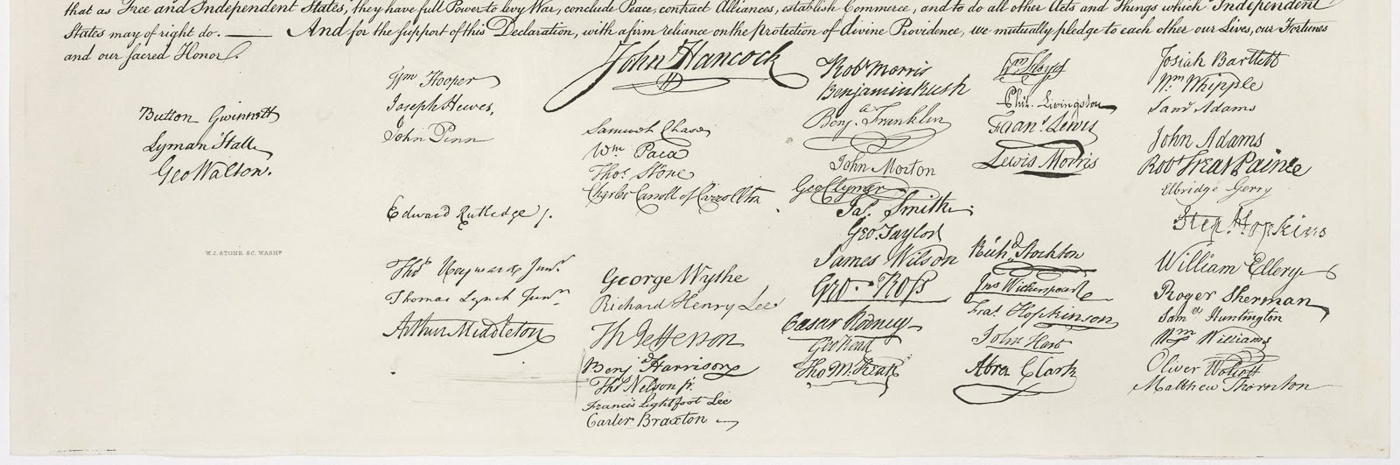 that as Free and Independent States, they have full Power to levy War, conclude Peace, contract Alliances, establish Commerce, and to do all other Acts and Things which Independent
States may of right do. — And for the support of this Declaration, with a firm reliance on the protection of divine Providence, we mutually pledge to each other our Lives, our Fortunes
and our sacred Honor.
Button Gwinnett
Lyman Hall
Geo Walton.
W.J. STONE SC. WASHN
Wm Hooper
Joseph Hewes,
John Penn
Edward Rutledge /.
Thos Heyward Junr.
Thomas Lynch Junr.
Arthur Middleton
John Hancock
Samuel Chase
Wm Paca
Thos Stone
Charles Carroll of Carrollton
George Wythe
Richard Henry Lee
Th Jefferson
Benj Harrison
Thos Nelson jr.
Francis Lightfoot Lee
Carter Braxton
Robt Morris
Benjamin Rush
Benj. Franklin
John Morton
Geo Clymer
Jas. Smith.
Geo. Taylor
James Wilson
Geo. Ross
Caesar Rodney
Geo Read
Tho M:Kean
Wm Floyd
Phil. Livingston
Frans. Lewis
Lewis Morris
Richd. Stockton
Jno Witherspoon
Fras. Hopkinson
John Hart
Abra Clark
Josiah Bartlett
Wm. Whipple
Saml Adams
John Adams
Robt Treat Paine
Elbridge Gerry
Step. Hopkins
William Ellery
Roger Sherman
Saml Huntington
Wm Williams
Oliver Wolcott
Matthew Thornton